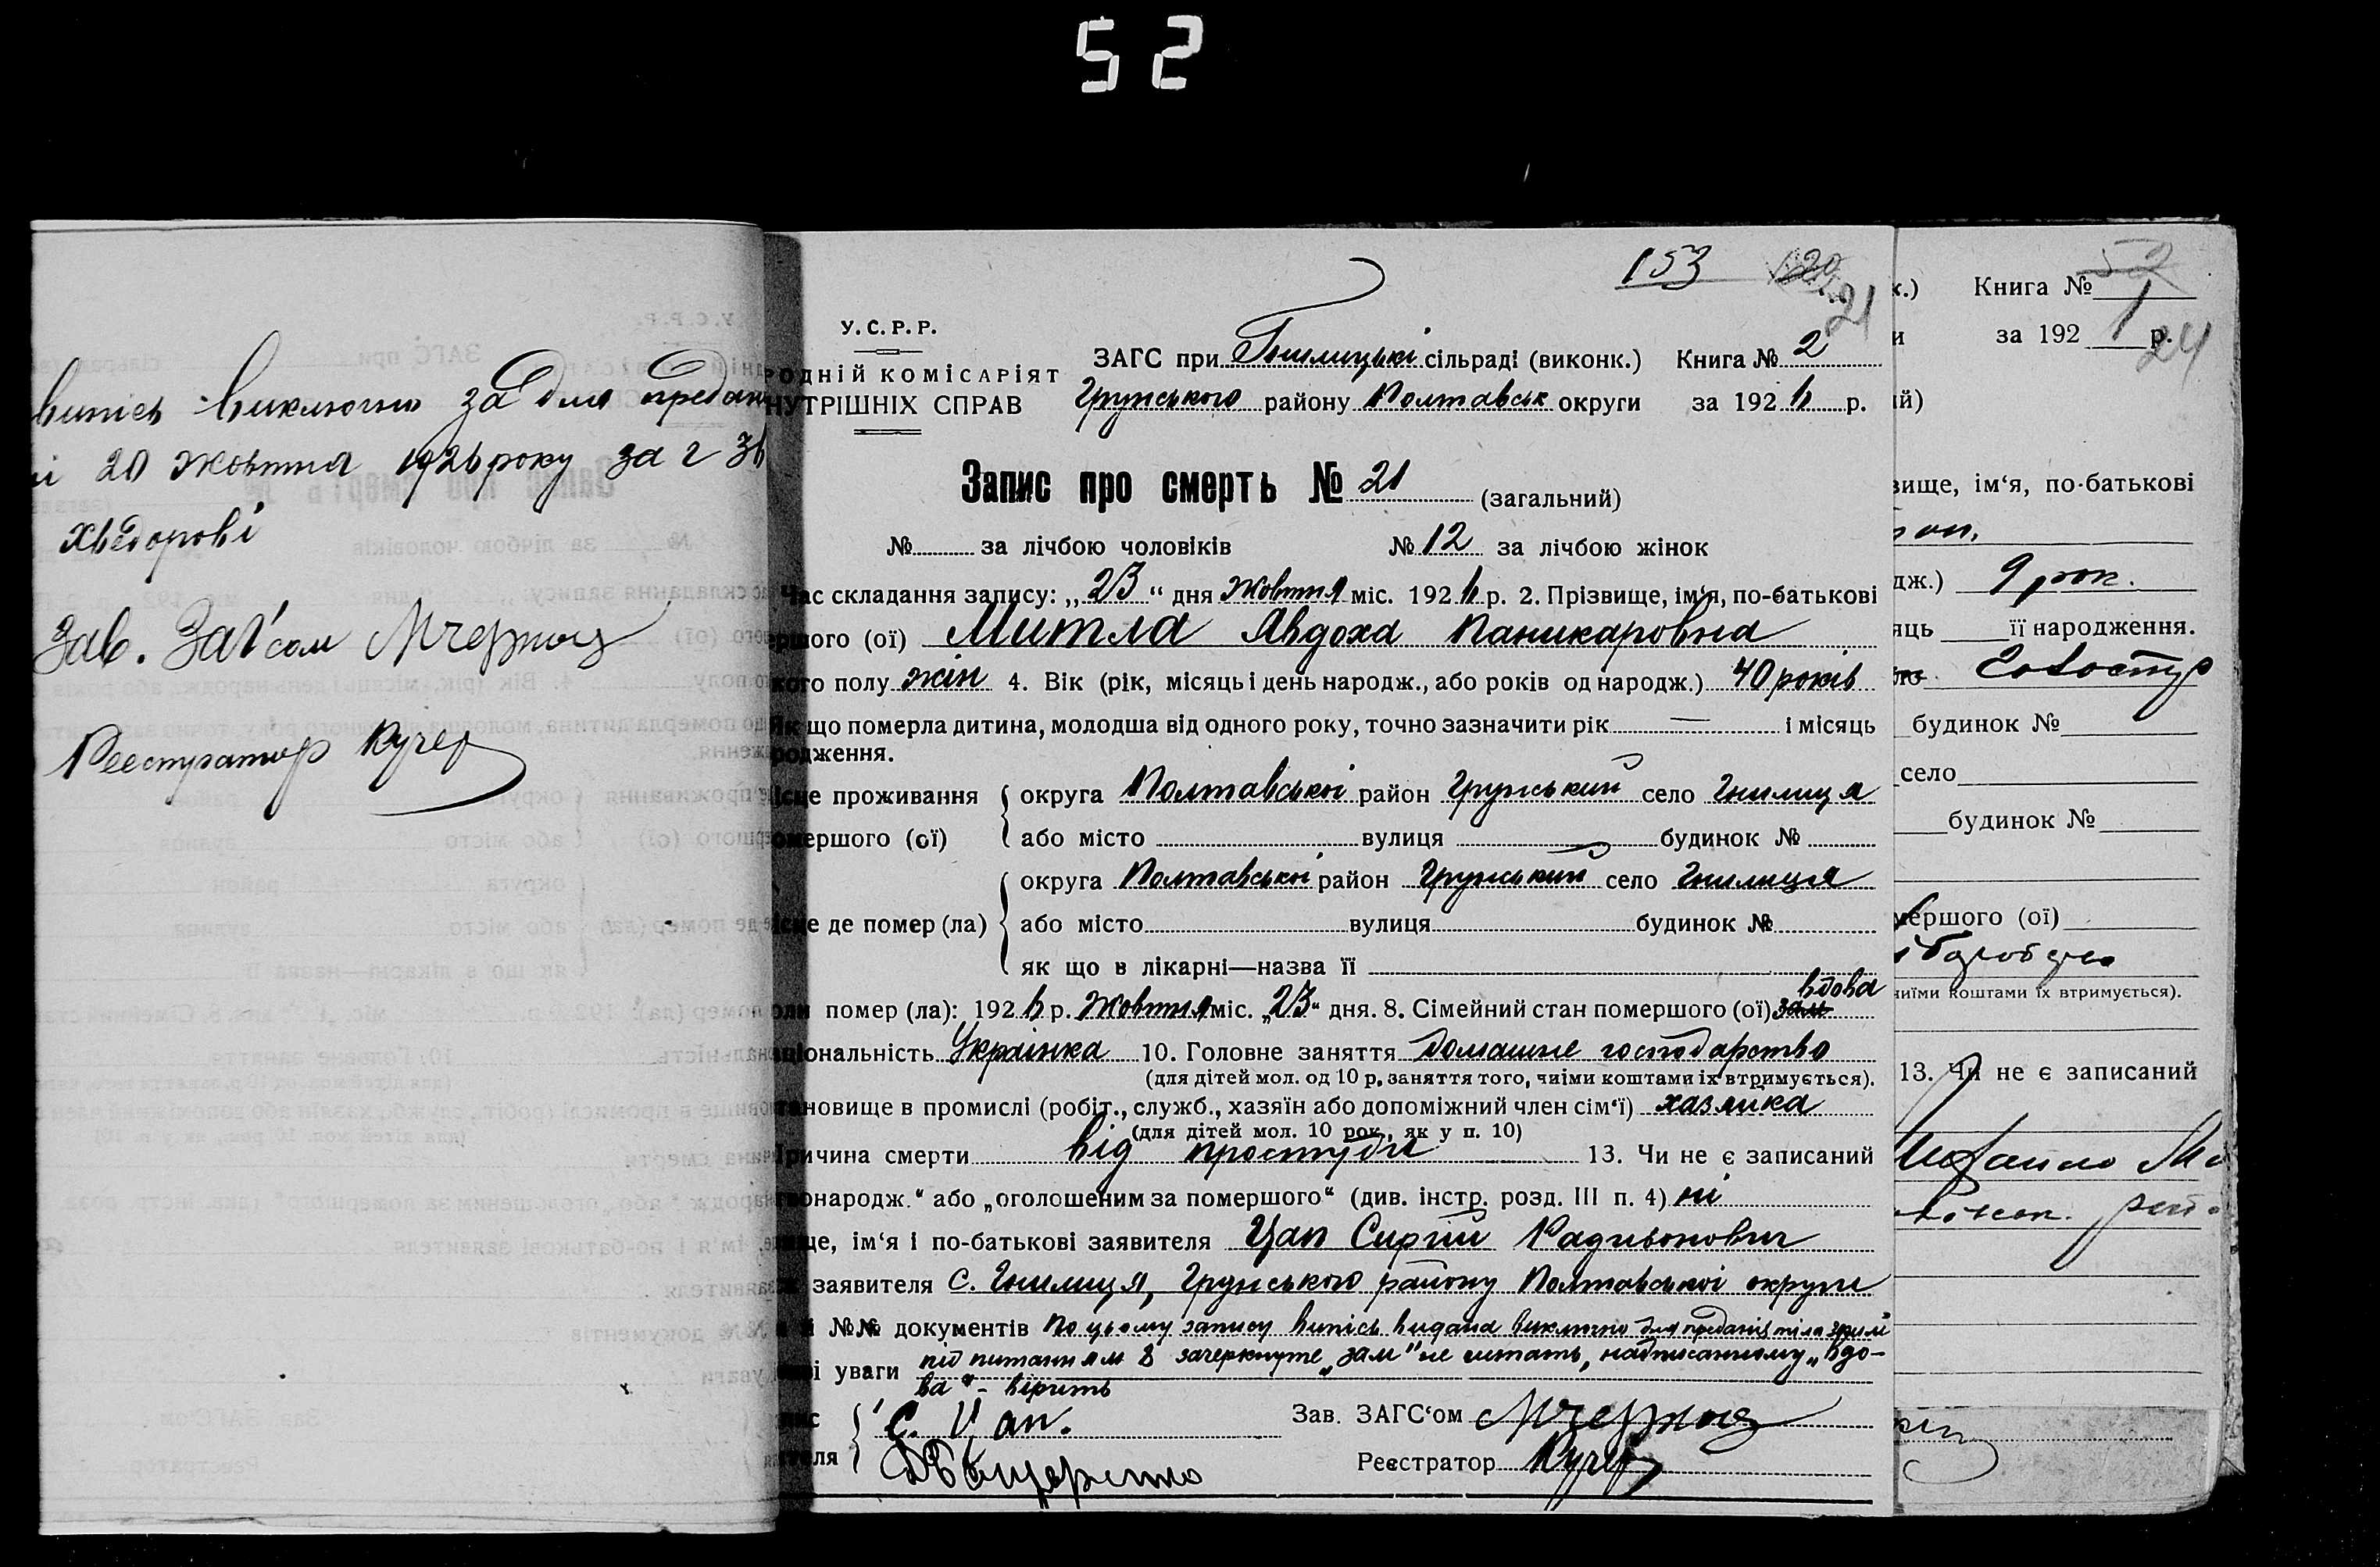 52
випісь виключно за для предан
і 20 жовтня 1926 року за г зв
хведорові
Зав. Заґсом МЧерноз
Реєстратор Кучер
153
120
21
У.С.Р.Р.
РОДНІЙ КОМІСАРІЯТ
НУТРІШНІХ СПРАВ
ЗАГС при Гнилицькі сільраді (виконк.) Книга № 2
Грунського району Полтавськ округи за 1926 р.
Запис про смерть № 21 (загальний)
№ за лічбою чоловіків № 12 за лічбою жінок
Час складання запису: „23“ дня жовтня міс. 1926 р. 2. Прізвище, ім‘я, по-батькові
ершого (ої) Митла Явдоха Паникаровна
кого полу жін 4. Вік (рік, місяць і день народж., або років од народж.) 40 років
Як що померла дитина, молодша від одного року, точно зазначити рік — і місяць
родження.
ісце проживання округа Полтавської район Грунський село Гнилиця
омершого (ої) або місто вулиця будинок №
округа Полтавської район Грунський село Гнилиця
ісце де помер (ла) або місто вулиця будинок №
як що в лікарні—назва її
вдова
оли помер (ла): 1926 р. жовтня міс. „23“ дня. 8. Сімейний стан помершого (ої) зам
ціональність Українка 10. Головне заняття домашнє господарство
(для дітей мол. од 10 р, заняття того, чиіми коштами їх втримується).
тановище в промислі (робіт., служб., хазяїн або допоміжний член сім‘ї) хазяйка
(для дітей мол. 10 рок., як у п. 10)
Причина смерти від простуди 13. Чи не є записаний
вонародж.“ або „оголошеним за помершого“ (див. інстр. розд. III п. 4) ні
ще, ім‘я і по-батькові заявителя Цап Сиргій Радивонович
заявителя С. Гнилиця, Грунського району Полтавської округи
й №№ документів По цьому запису випісь видана виключно для преданія тіла землі
ві уваги під питанням 8 зачеркнуте „зам“ не читать, надписанному „вдо-
ва“ - вірить
пис С. Цап. Зав. ЗАГС‘ом МЧерноз
ителя Реєстратор Кучер
к.) Книга № 52
1
и за 192 р.
24
ій)
звище, ім‘я, по-батькові
дж.) 9 рок.
яць її народження.
будинок №
село
будинок №
мершого (ої)
чиїми коштами їх втримується).
13. Чи не є записаний